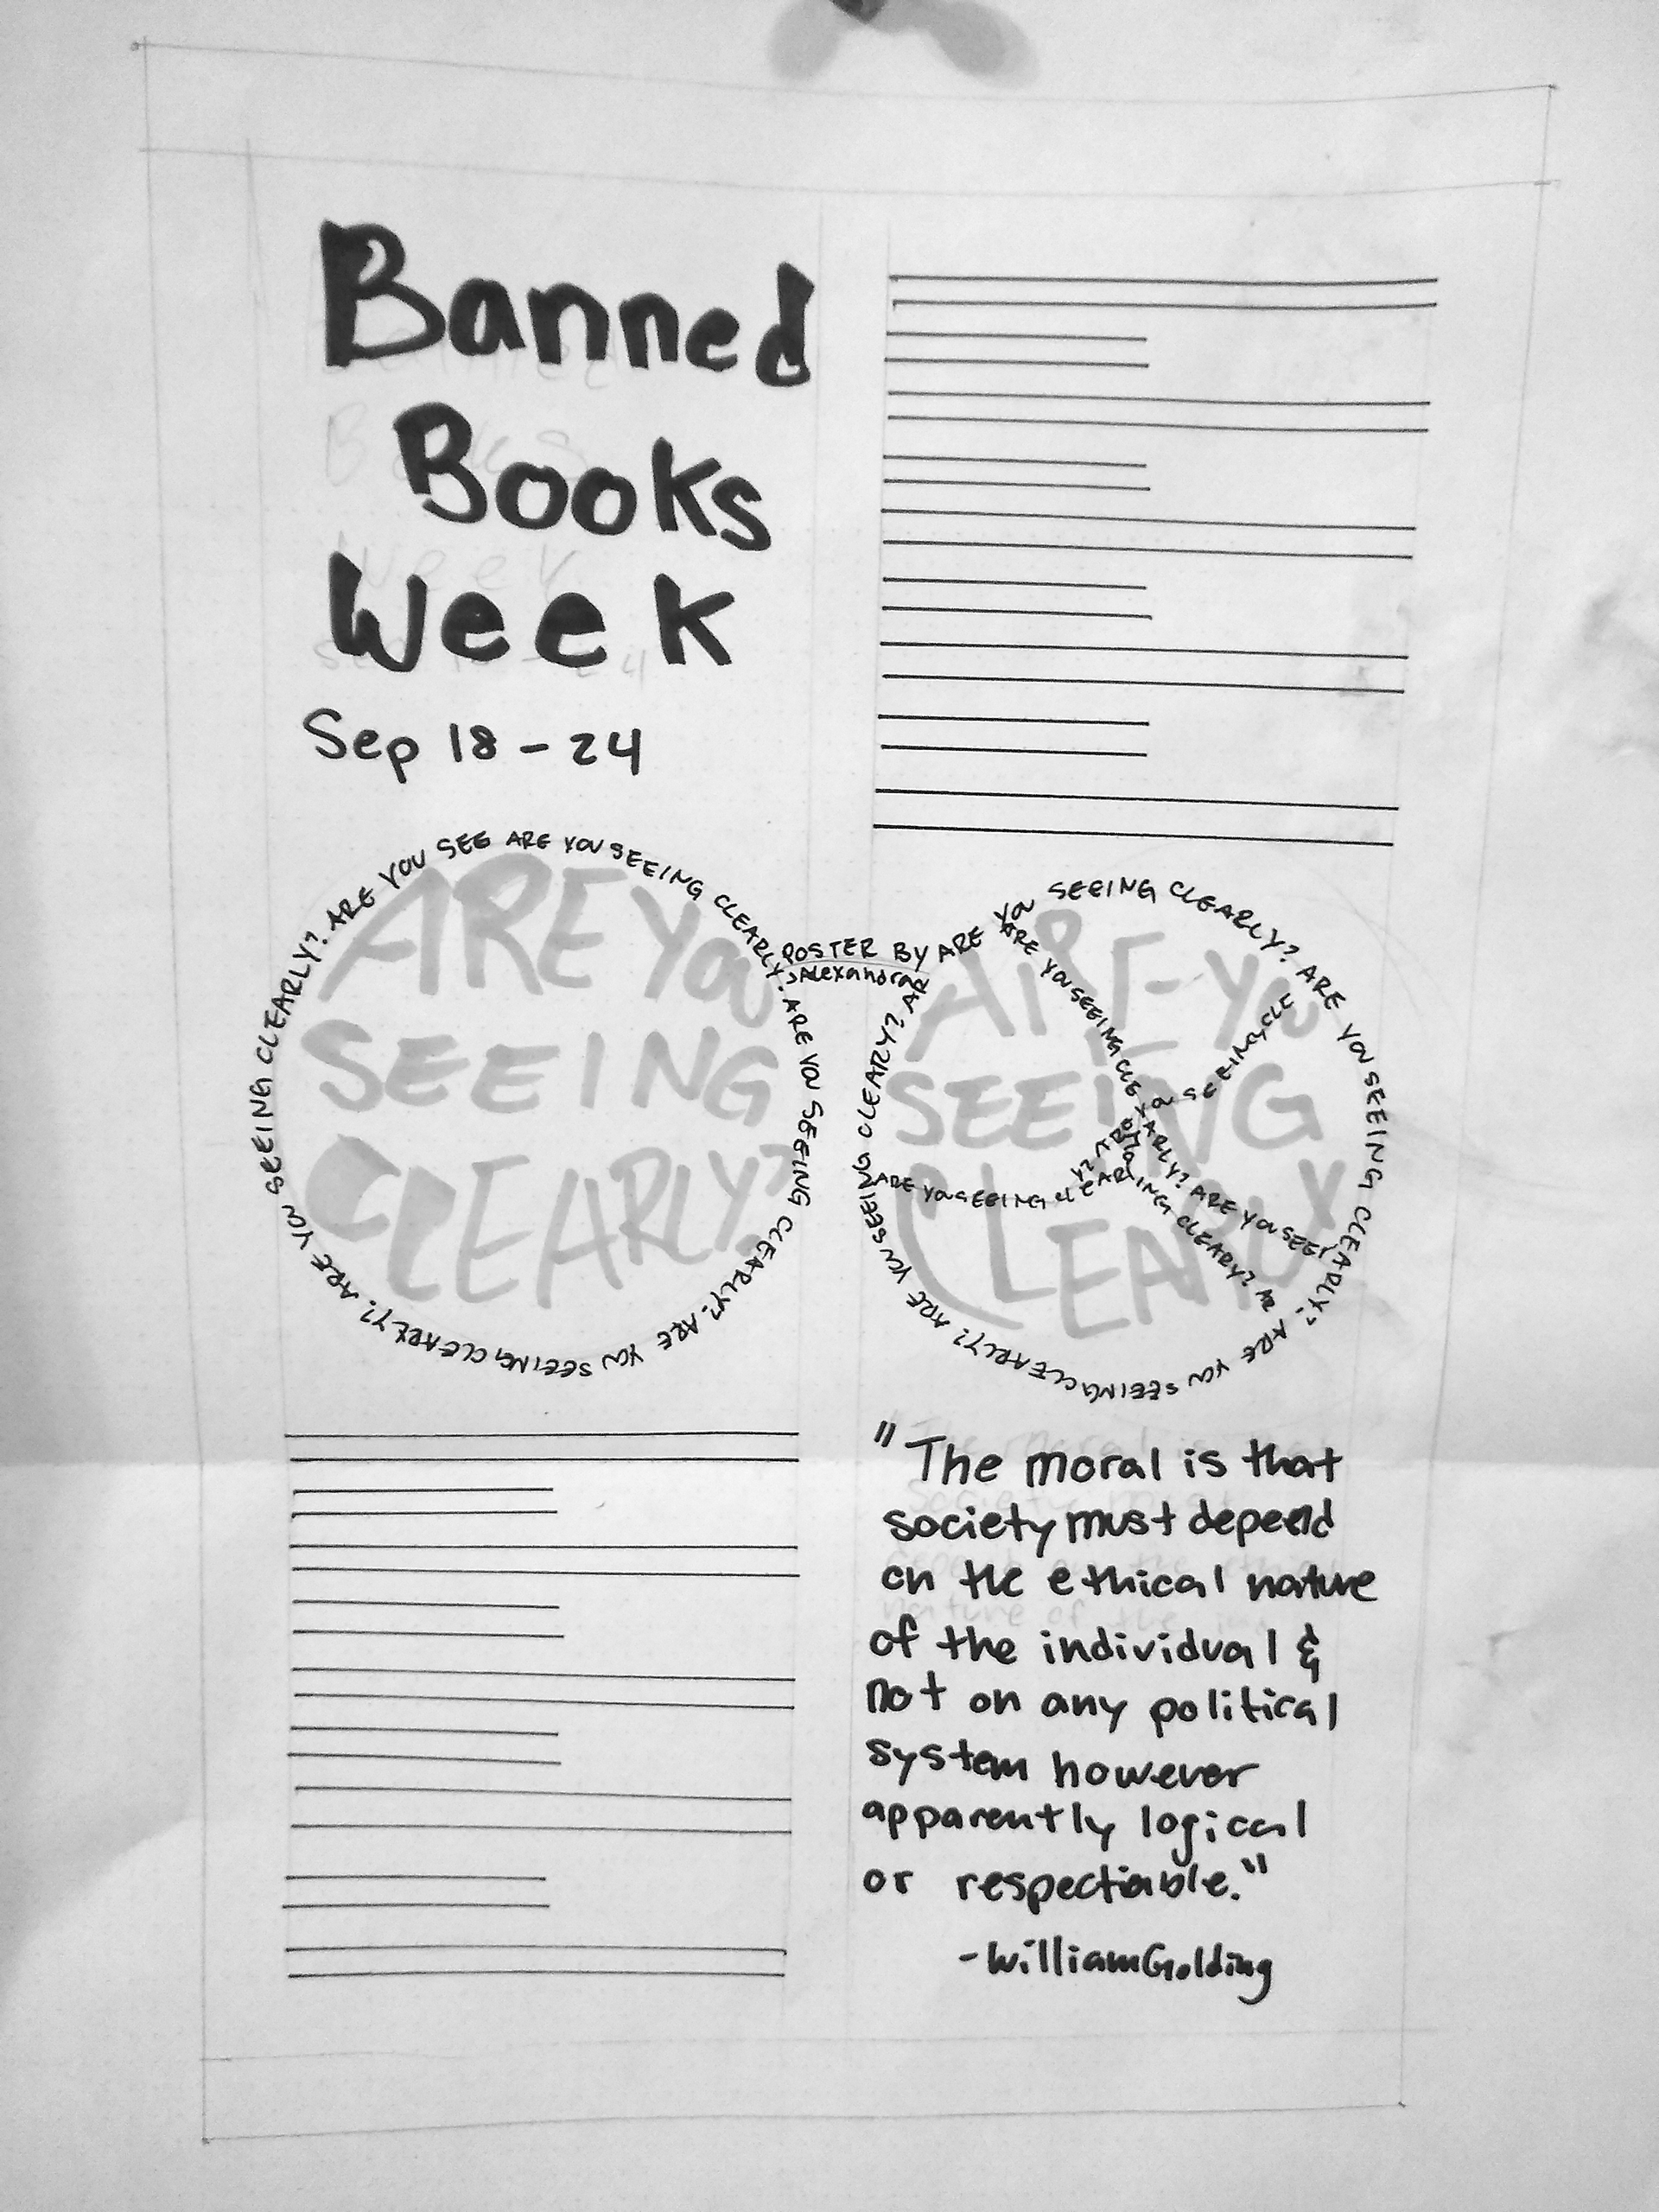 Banned
Books
Week
Sep 18-24
ARE YOU SEE ARE YOU SEEING CLEARLY? ARE YOU SEEING CLEARLY? ARE YOU SEEING CLEARLY? ARE YOU SEEING CLEARLY?
ARE YOU
SEEING
CLEARLY?
POSTER BY
Alexandra
ARE YOU SEEING CLEARLY? ARE YOU SEEING CLEARLY? ARE YOU SEEING CLEARLY? ARE YOU SEEING CLEARLY? AR
ARE YOU SEEING CLEARLY? ARE YOU SEEI
ARE YOU SEEING CLE
ARE YOU SEEING CLEARLY?
ARE YOU
SEEING
CLEARLY
"The moral is that
society must depend
on the ethical nature
of the individual &
not on any political
system however
apparently logical
or respectiable."
-William Golding